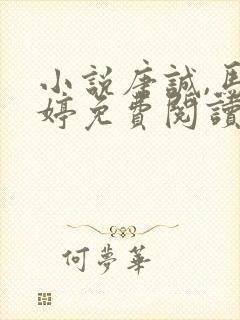 小說唐誠,馬
婷免費閱讀
何夢華